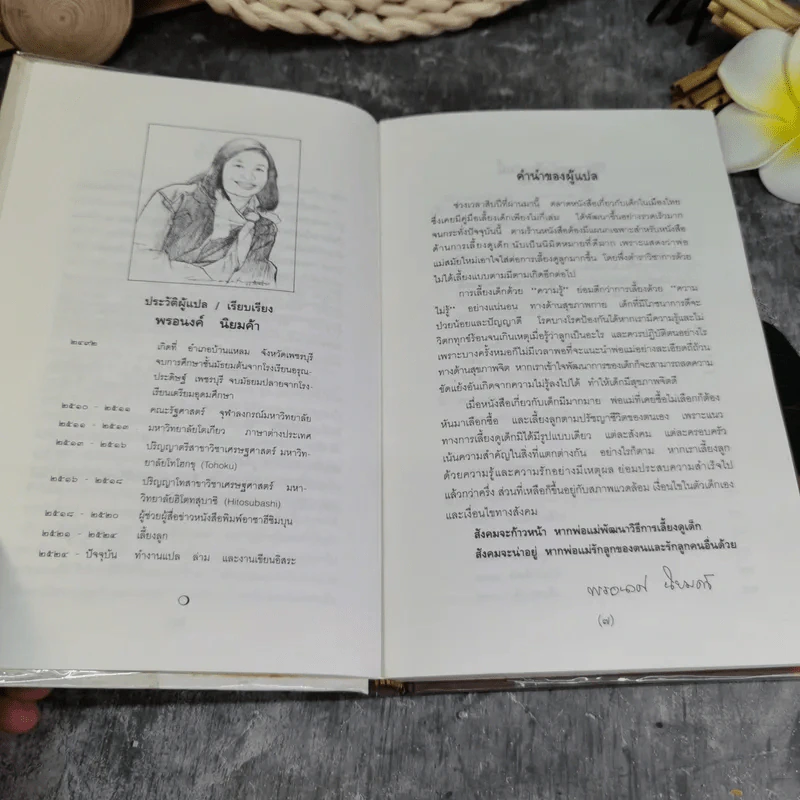 ประวัติผู้แปล / เรียบเรียง
พรอนงค์ นิยมค้า
๒๔๙๒ เกิดที่ อำเภอบ้านแหลม จังหวัดเพชรบุรี
จบการศึกษาชั้นมัธยมต้นจากโรงเรียนอรุณ-
ประดิษฐ์ เพชรบุรี จบมัธยมปลายจากโรง-
เรียนเตรียมอุดมศึกษา
๒๕๑๐ - ๒๕๑๑ คณะรัฐศาสตร์ จุฬาลงกรณ์มหาวิทยาลัย
๒๕๑๑ - ๒๕๑๒ มหาวิทยาลัยโตเกียว ภาษาต่างประเทศ
๒๕๑๓ - ๒๕๑๖ ปริญญาตรีสาขาวิชาเศรษฐศาสตร์ มหาวิ-
ทยาลัยโทโฮกุ (Tohoku)
๒๕๑๖ - ๒๕๑๘ ปริญญาโทสาขาวิชาเศรษฐศาสตร์ มหา-
วิทยาลัยฮิโตทสุบาชิ (Hitosubashi)
๒๕๑๘ - ๒๕๒๐ ผู้ช่วยผู้สื่อข่าวหนังสือพิมพ์อาซาฮีชิมบุน
๒๕๒๑ - ๒๕๒๔ เลี้ยงลูก
๒๕๒๔ - ปัจจุบัน ทำงานแปล ล่าม และงานเขียนอิสระ
คำนำของผู้แปล
ช่วงเวลาสิบปีที่ผ่านมานี้ ตลาดหนังสือเกี่ยวกับเด็กในเมืองไทย
ซึ่งเคยมีคู่มือเลี้ยงเด็กเพียงไม่กี่เล่ม ได้พัฒนาขึ้นอย่างรวดเร็วมาก
จนกระทั่งปัจจุบันนี้ ตามร้านหนังสือต้องมีแผนกเฉพาะสำหรับหนังสือ
ด้านการเลี้ยงดูเด็ก นับเป็นนิมิตหมายที่ดีมาก เพราะแสดงว่าพ่อ
แม่สมัยใหม่เอาใจใส่ต่อการเลี้ยงดูลูกมากขึ้น โดยพึ่งตำราวิชาการด้วย
ไม่ได้เลี้ยงแบบตามมีตามเกิดอีกต่อไป
การเลี้ยงเด็กด้วย "ความรู้" ย่อมดีกว่าการเลี้ยงด้วย "ความ
ไม่รู้" อย่างแน่นอน ทางด้านสุขภาพกาย เด็กที่มีโภชนาการดีจะ
ป่วยน้อยและปัญญาดี โรคบางโรคป้องกันได้หากเรามีความรู้และไม่
วิตกทุกข์ร้อนจนเกินเหตุเมื่อรู้ว่าลูกเป็นอะไร และควรปฏิบัติตนอย่างไร
เพราะบางครั้งหมอก็ไม่มีเวลาพอที่จะแนะนำพ่อแม่อย่างละเอียดถี่ถ้วน
ทางด้านสุขภาพจิต หากเราเข้าใจพัฒนาการของเด็กก็จะสามารถลดความ
ขัดแย้งอันเกิดจากความไม่รู้ลงไปได้ ทำให้เด็กมีสุขภาพจิตดี
เมื่อหนังสือเกี่ยวกับเด็กมีมากมาย พ่อแม่ที่เคยซื้อไม่เลือกก็ต้อง
หันมาเลือกซื้อ และเลี้ยงลูกตามปรัชญาชีวิตของตนเอง เพราะแนว
ทางการเลี้ยงดูเด็กมิได้มีรูปแบบเดียว แต่ละสังคม แต่ละครอบครัว
เน้นความสำคัญในสิ่งที่แตกต่างกัน อย่างไรก็ตาม หากเราเลี้ยงลูก
ด้วยความรู้และความรักอย่างมีเหตุผล ย่อมประสบความสำเร็จไป
แล้วกว่าครึ่ง ส่วนที่เหลือก็ขึ้นอยู่กับสภาพแวดล้อม เงื่อนไขในตัวเด็กเอง
และเงื่อนไขทางสังคม
สังคมจะก้าวหน้า หากพ่อแม่พัฒนาวิธีการเลี้ยงดูเด็ก
สังคมจะน่าอยู่ หากพ่อแม่รักลูกของตนและรักลูกคนอื่นด้วย
พรอนงค์ นิยมค้า
(๗)